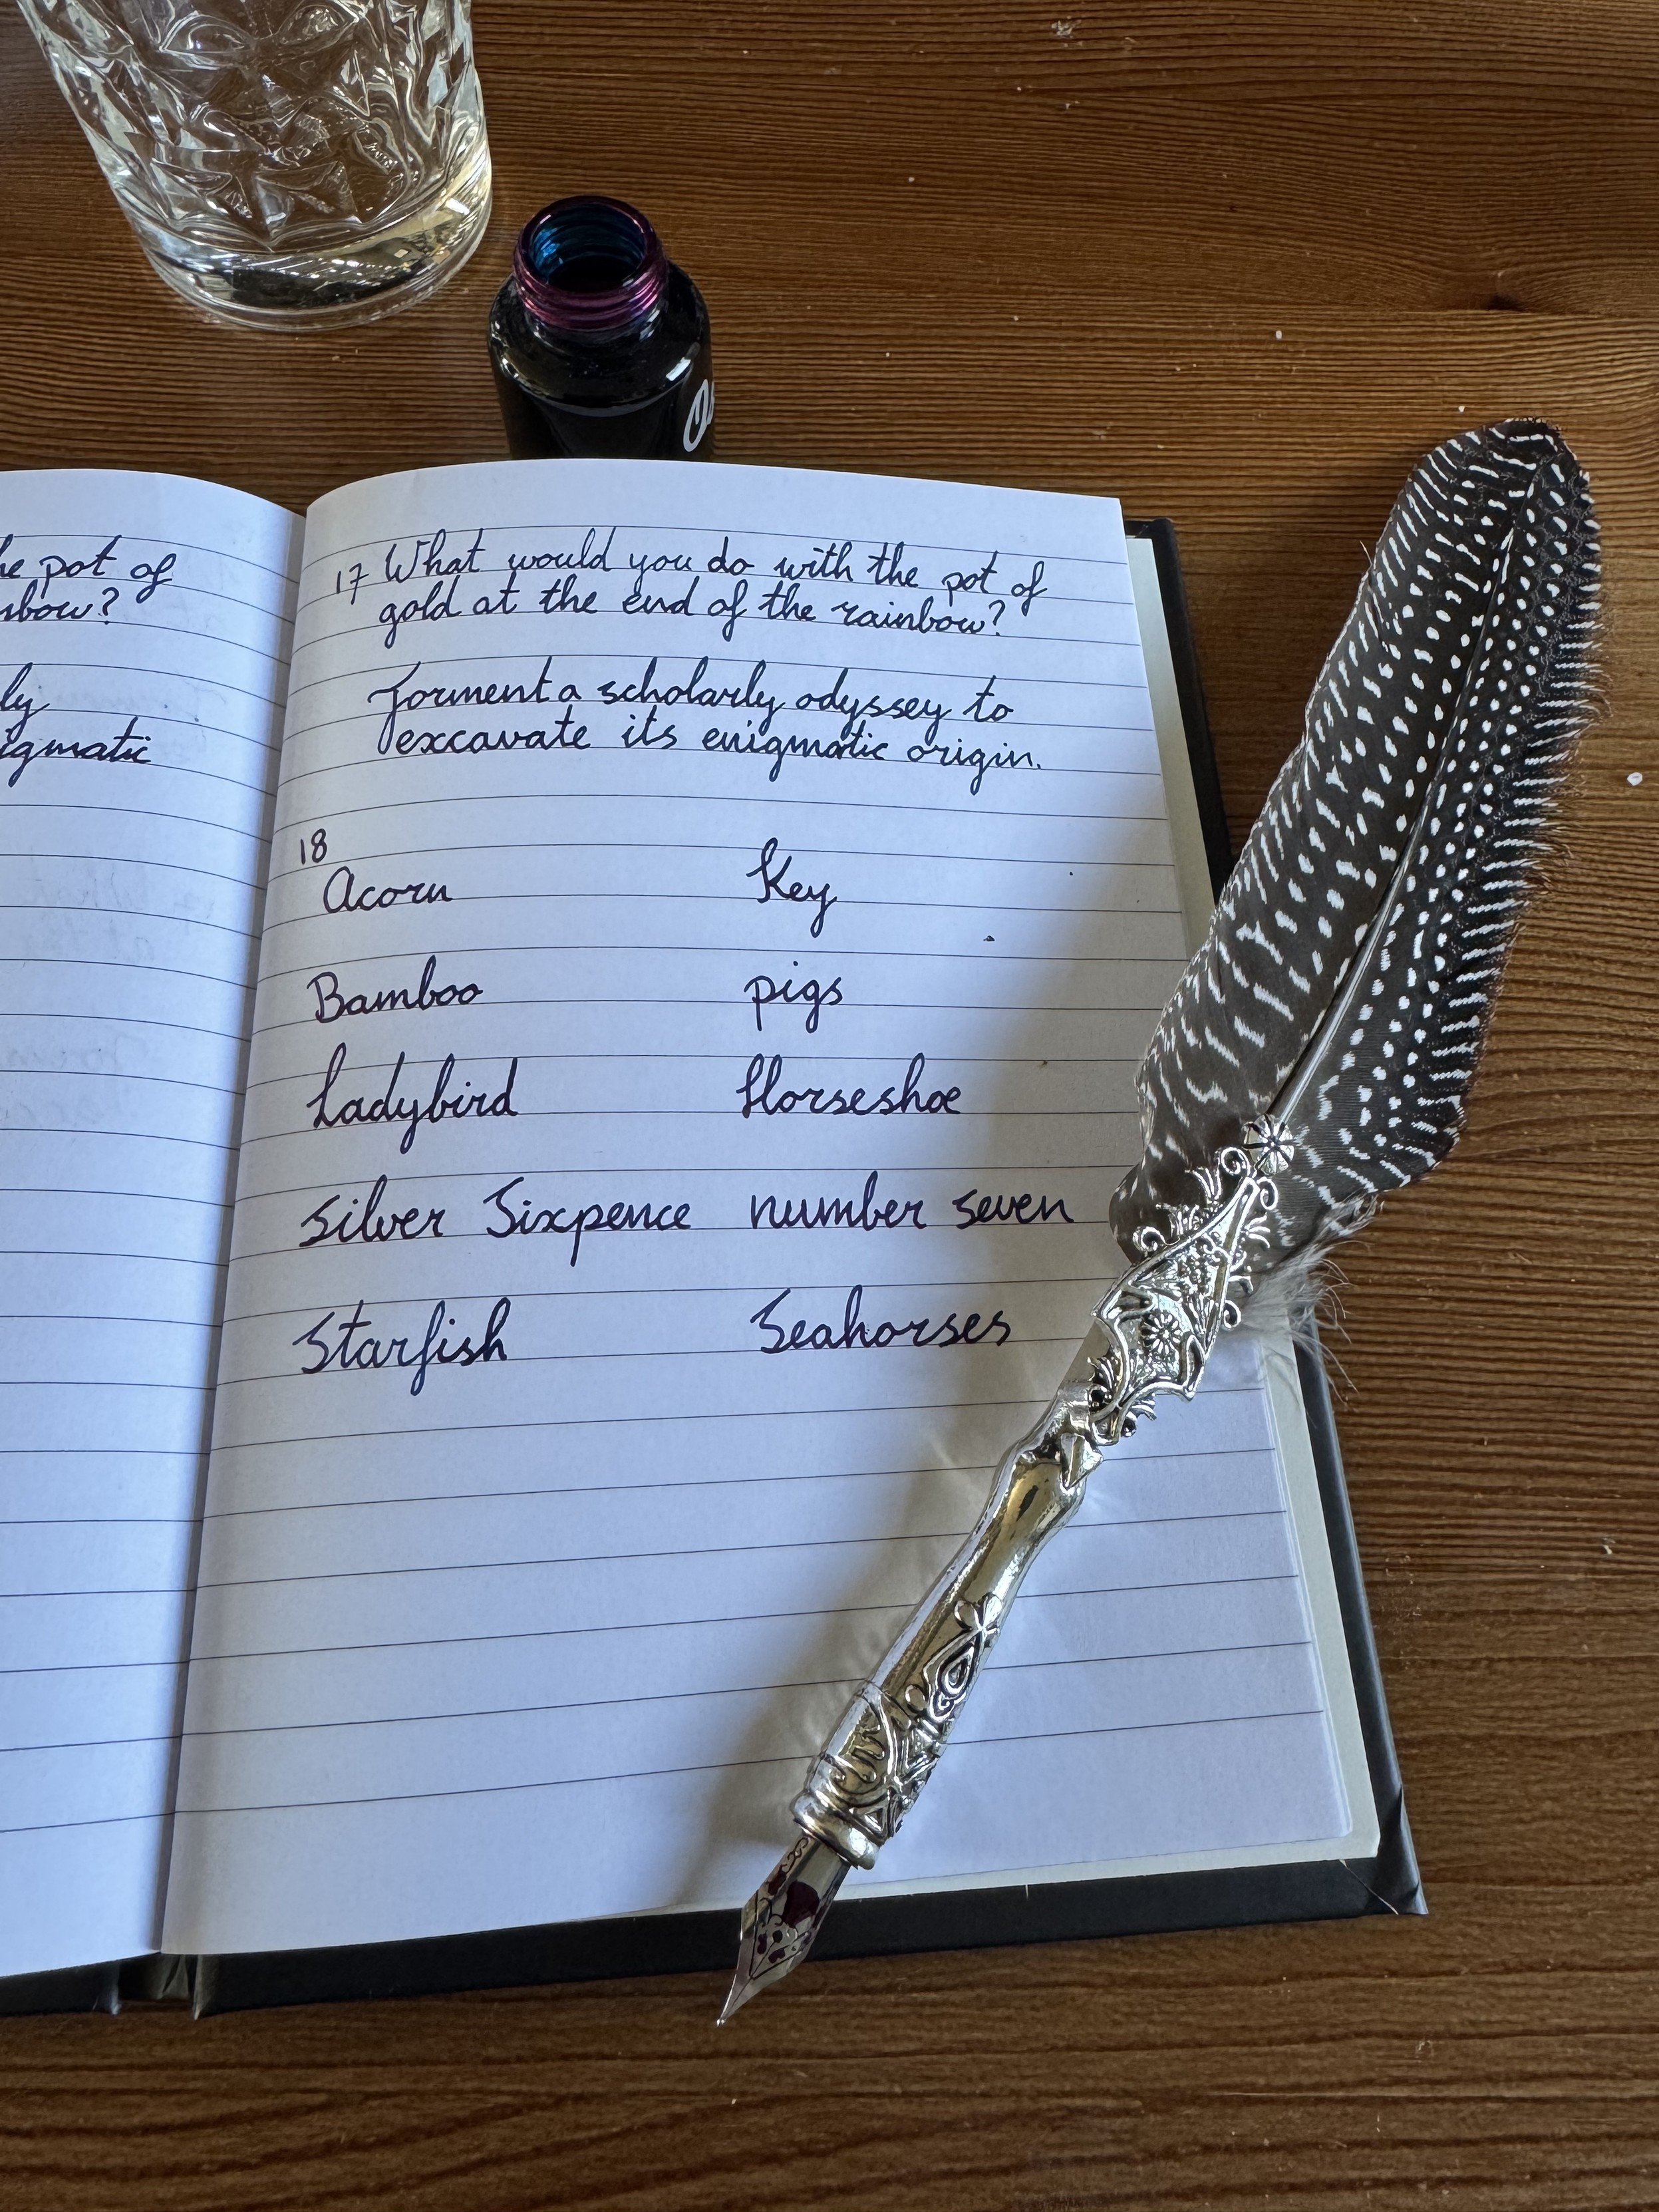 pot of
ly
17 What would you do with the pot of
gold at the end of the rainbow?
Torment a scholarly odyssey to
excavate its enigmatic origin.
18
Acorn Key
Bamboo pigs
Ladybird Horseshoe
Silver Sixpence number seven
Starfish Seahorses